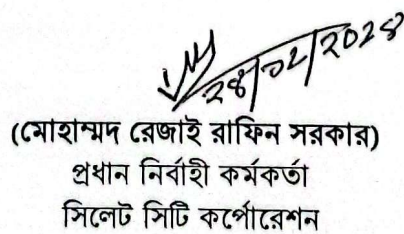 ২৪/০২/২০২৪
(মোহাম্মদ রেজাই রাফিন সরকার)
প্রধান নির্বাহী কর্মকর্তা
সিলেট সিটি কর্পোরেশন